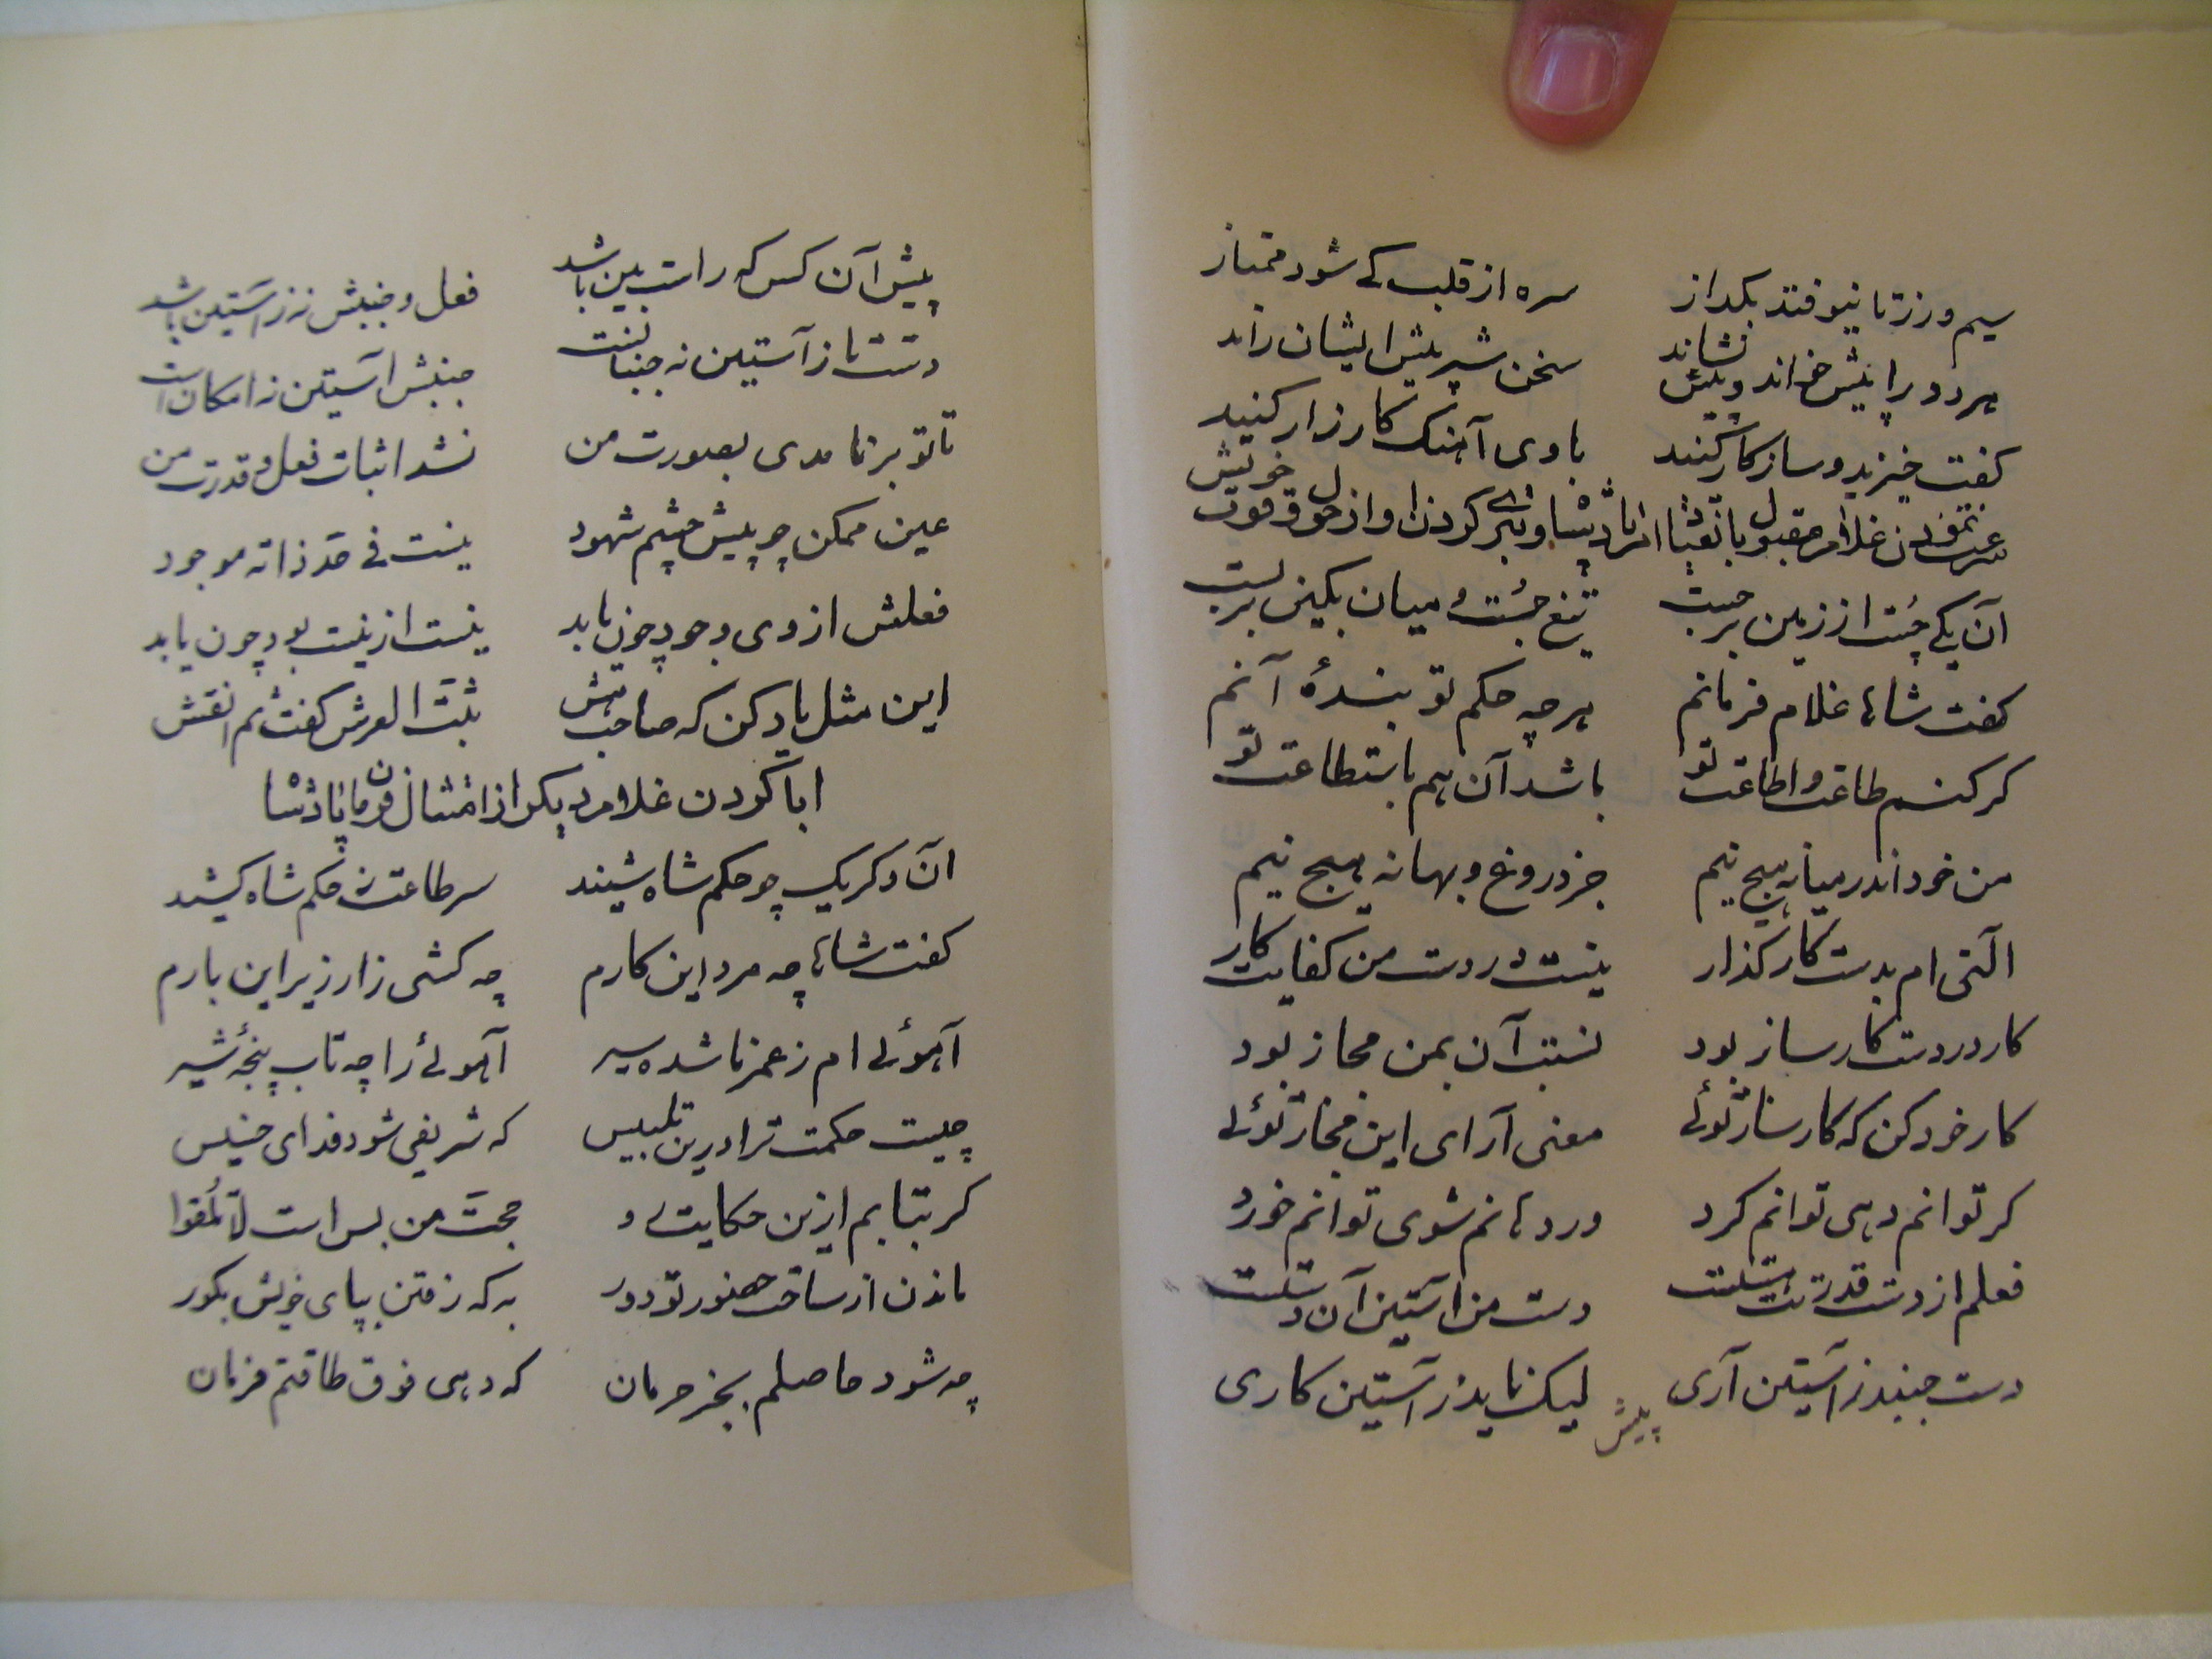 سیم و زر تا نیوفتد بکداز سره از قلب کے شود ممتاز
هر دو را پیش خواند و پیش نشاند سخن شیر پیش ایشان راند
کفت خیزید و ساز کار کنید با وی آهنک کارزار کنید
سرعت نمودن غلام مقبول بانقیاد امر پادشاه و تبری کردن او از حول و قوت خویش
آن یکے چست از زمین برجست تیغ جست و میان بکین بربست
کفت شاها غلام فرمانم هرچه حکم تو بندۀ آنم
کر کنم طاعت و اطاعت تو باشد آن هم باستطاعت تو
من خود اندر میانه هیچ نیم جز دروغ و بهانه هیچ نیم
آلتی ام بدست کار کذار نیست در دست من کفایت کار
کار در دست کارساز بود نسبت آن بمن مجاز بود
کار خود کن که کارساز توئے معنی آرای این مجاز توئے
کر توانم دهی توانم کرد ور دهانم شوی توانم خورد
فعلم از دست قدرت تست دست من آستین آن دستست
دست جنبد ز آستین آری لیک ناید ز آستین کاری
پیش
پیش آن کس که راست بین باشد فعل و جنبش نه ز آستین باشد
دست تا ز آستین نه جنبانست جنبش آستین نه امکانست
تا تو برنامدی بصورت من نشد اثبات فعل و قدرت من
عین ممکن چو پیش چشم شهود نیست فی حد ذاته موجود
فعلش از وی وجود چون یابد نیست از نیست بود چون یابد
این مثل یاد کن که صاحب هش ثبت العرش کفت ثم انقش
ابا کردن غلام دیکر از امتثال فرمان پادشاه
آن دکر یک چو حکم شاه شنید سر طاعت ز حکم شاه کشید
کفت شاها چه مرد این کارم چه کشی زار زیر این بارم
آهوئے ام ز عمر ناشده سیر آهوئے را چه تاب پنجۀ شیر
چیست حکمت ترا درین تلبیس که شریفی شود فدای خسیس
کر بتابم ازین حکایت رو حجت من بس است لا تلقوا
ماندن از ساحت حضور تو دور به که رفتن بپای خویش بکور
چه شود حاصلم بجز حرمان که دهی فوق طاقتم فرمان